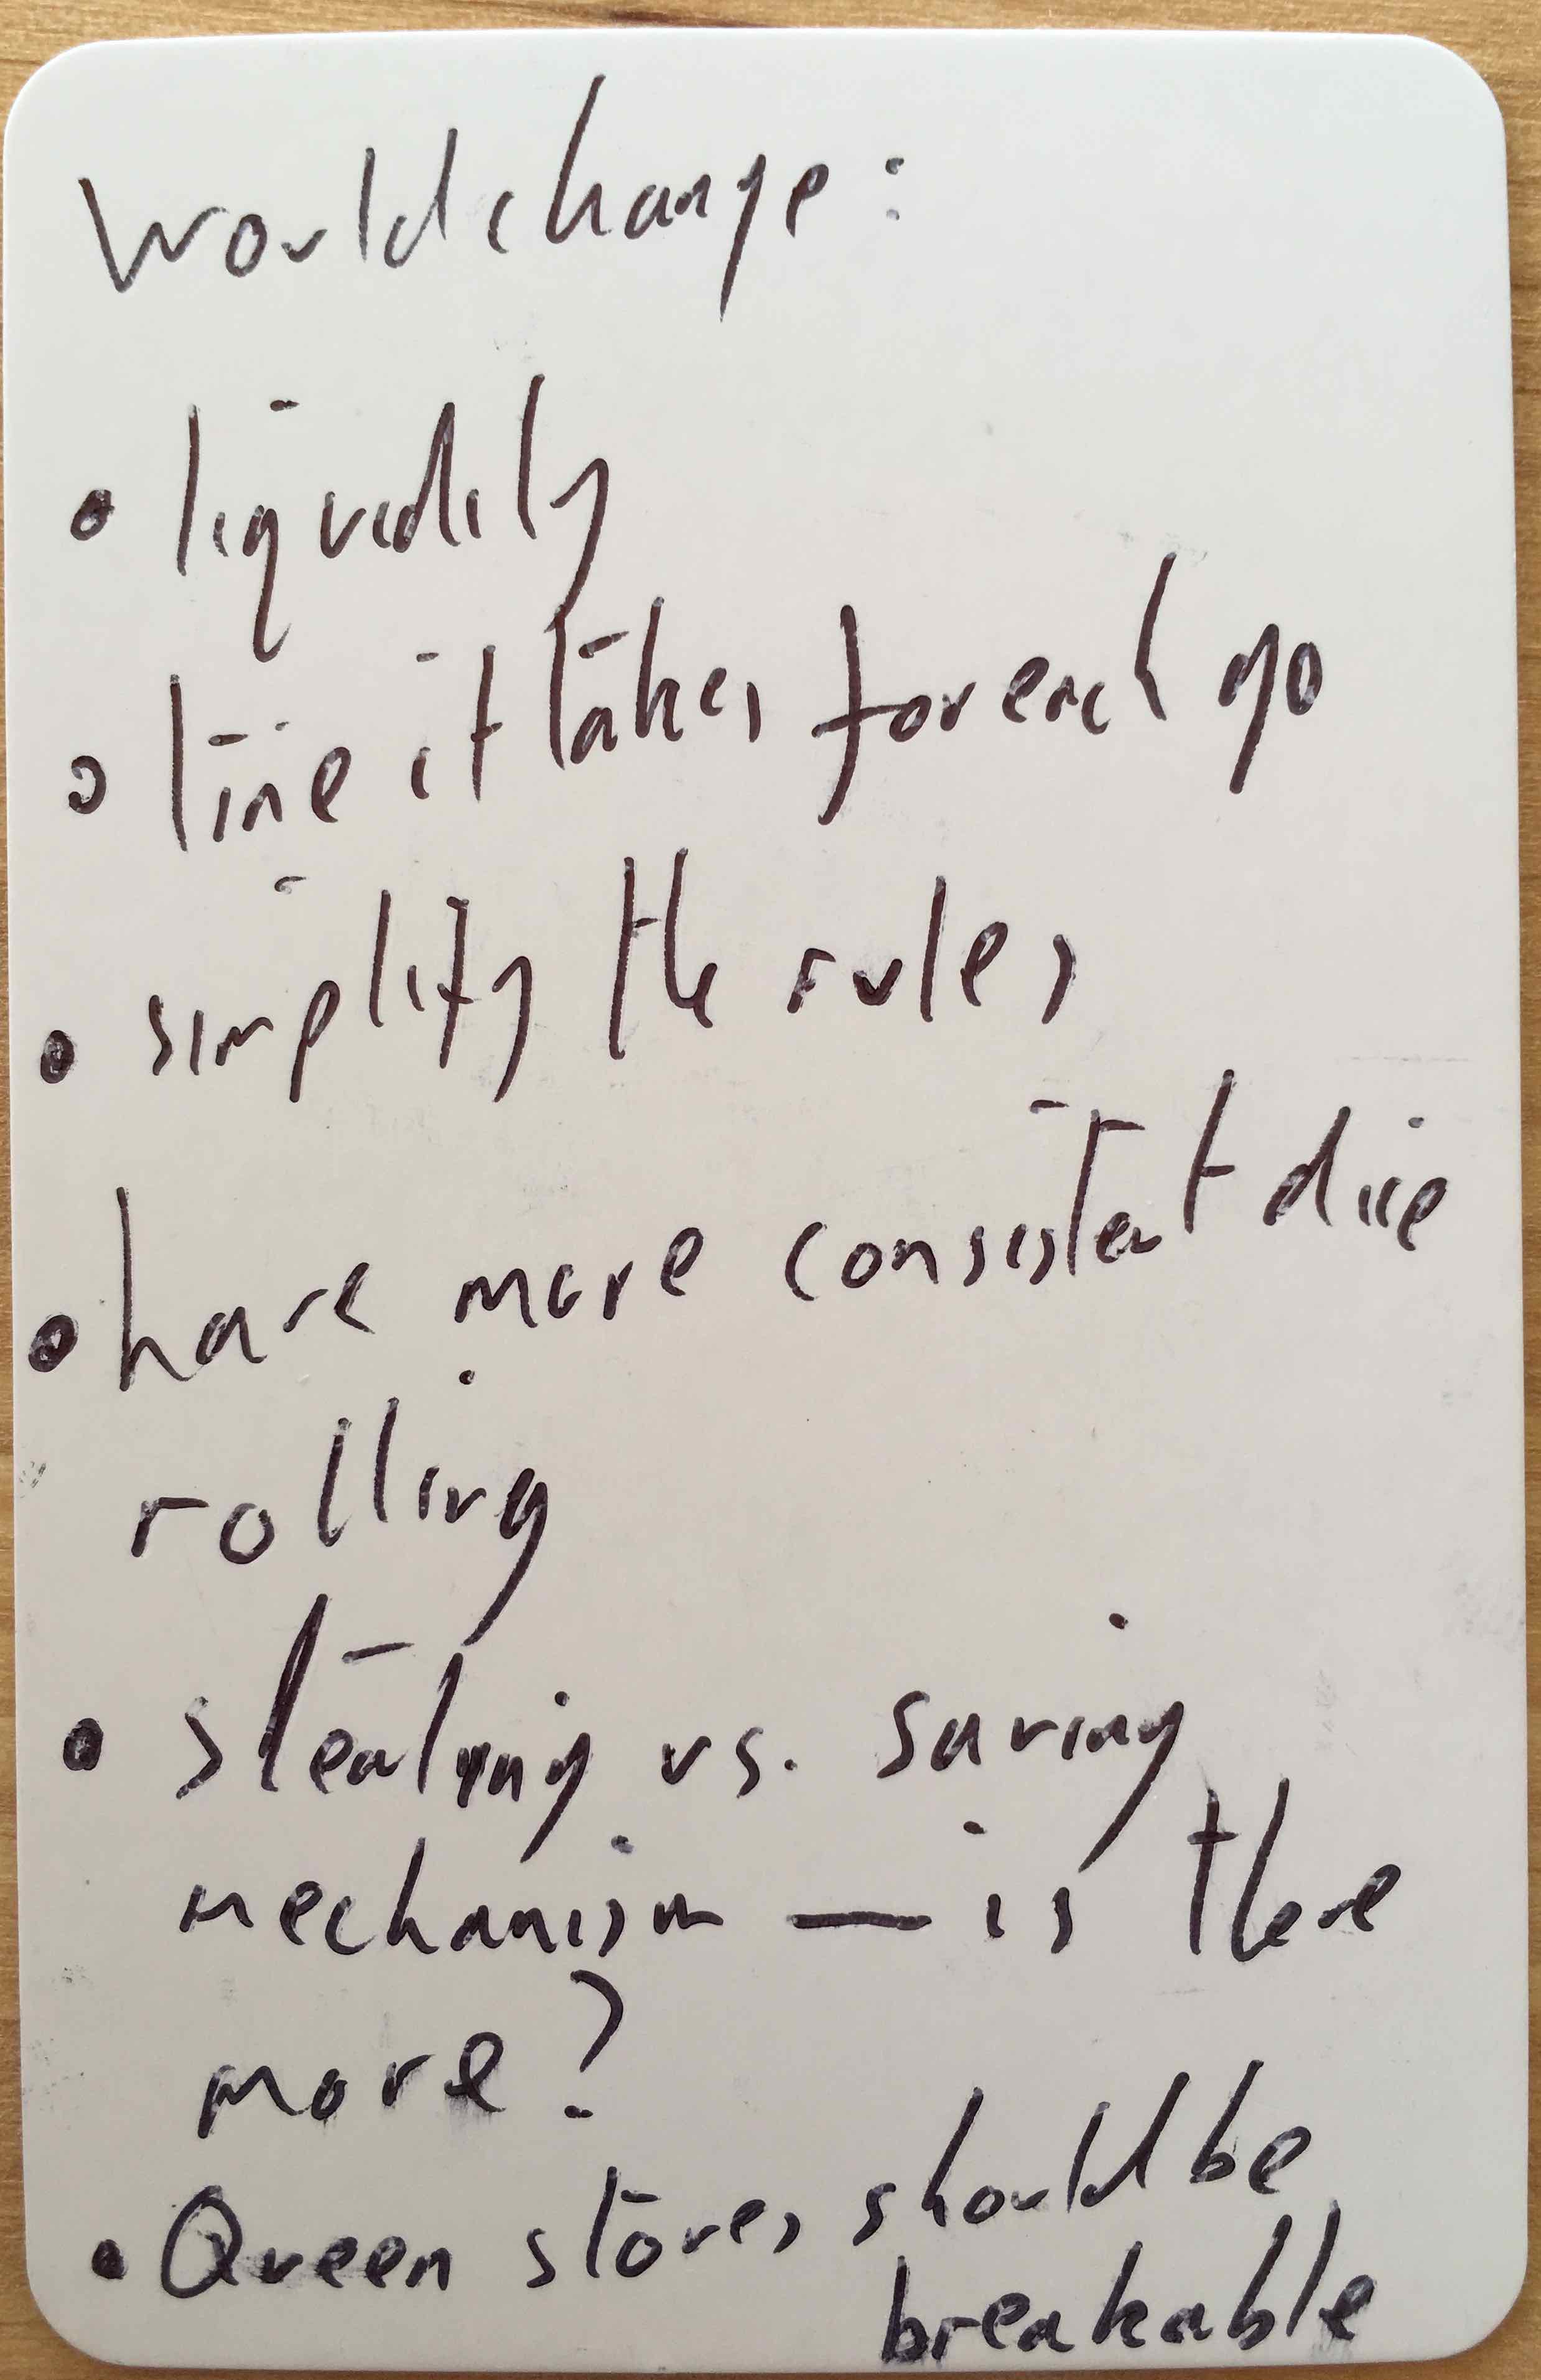 Would change:
• liquidity
• time it takes for each go
• simplify the rules
• have more consistent dice
rolling
• stealing vs. saving
mechanism — is there
more?
• Queen stores should be
breakable